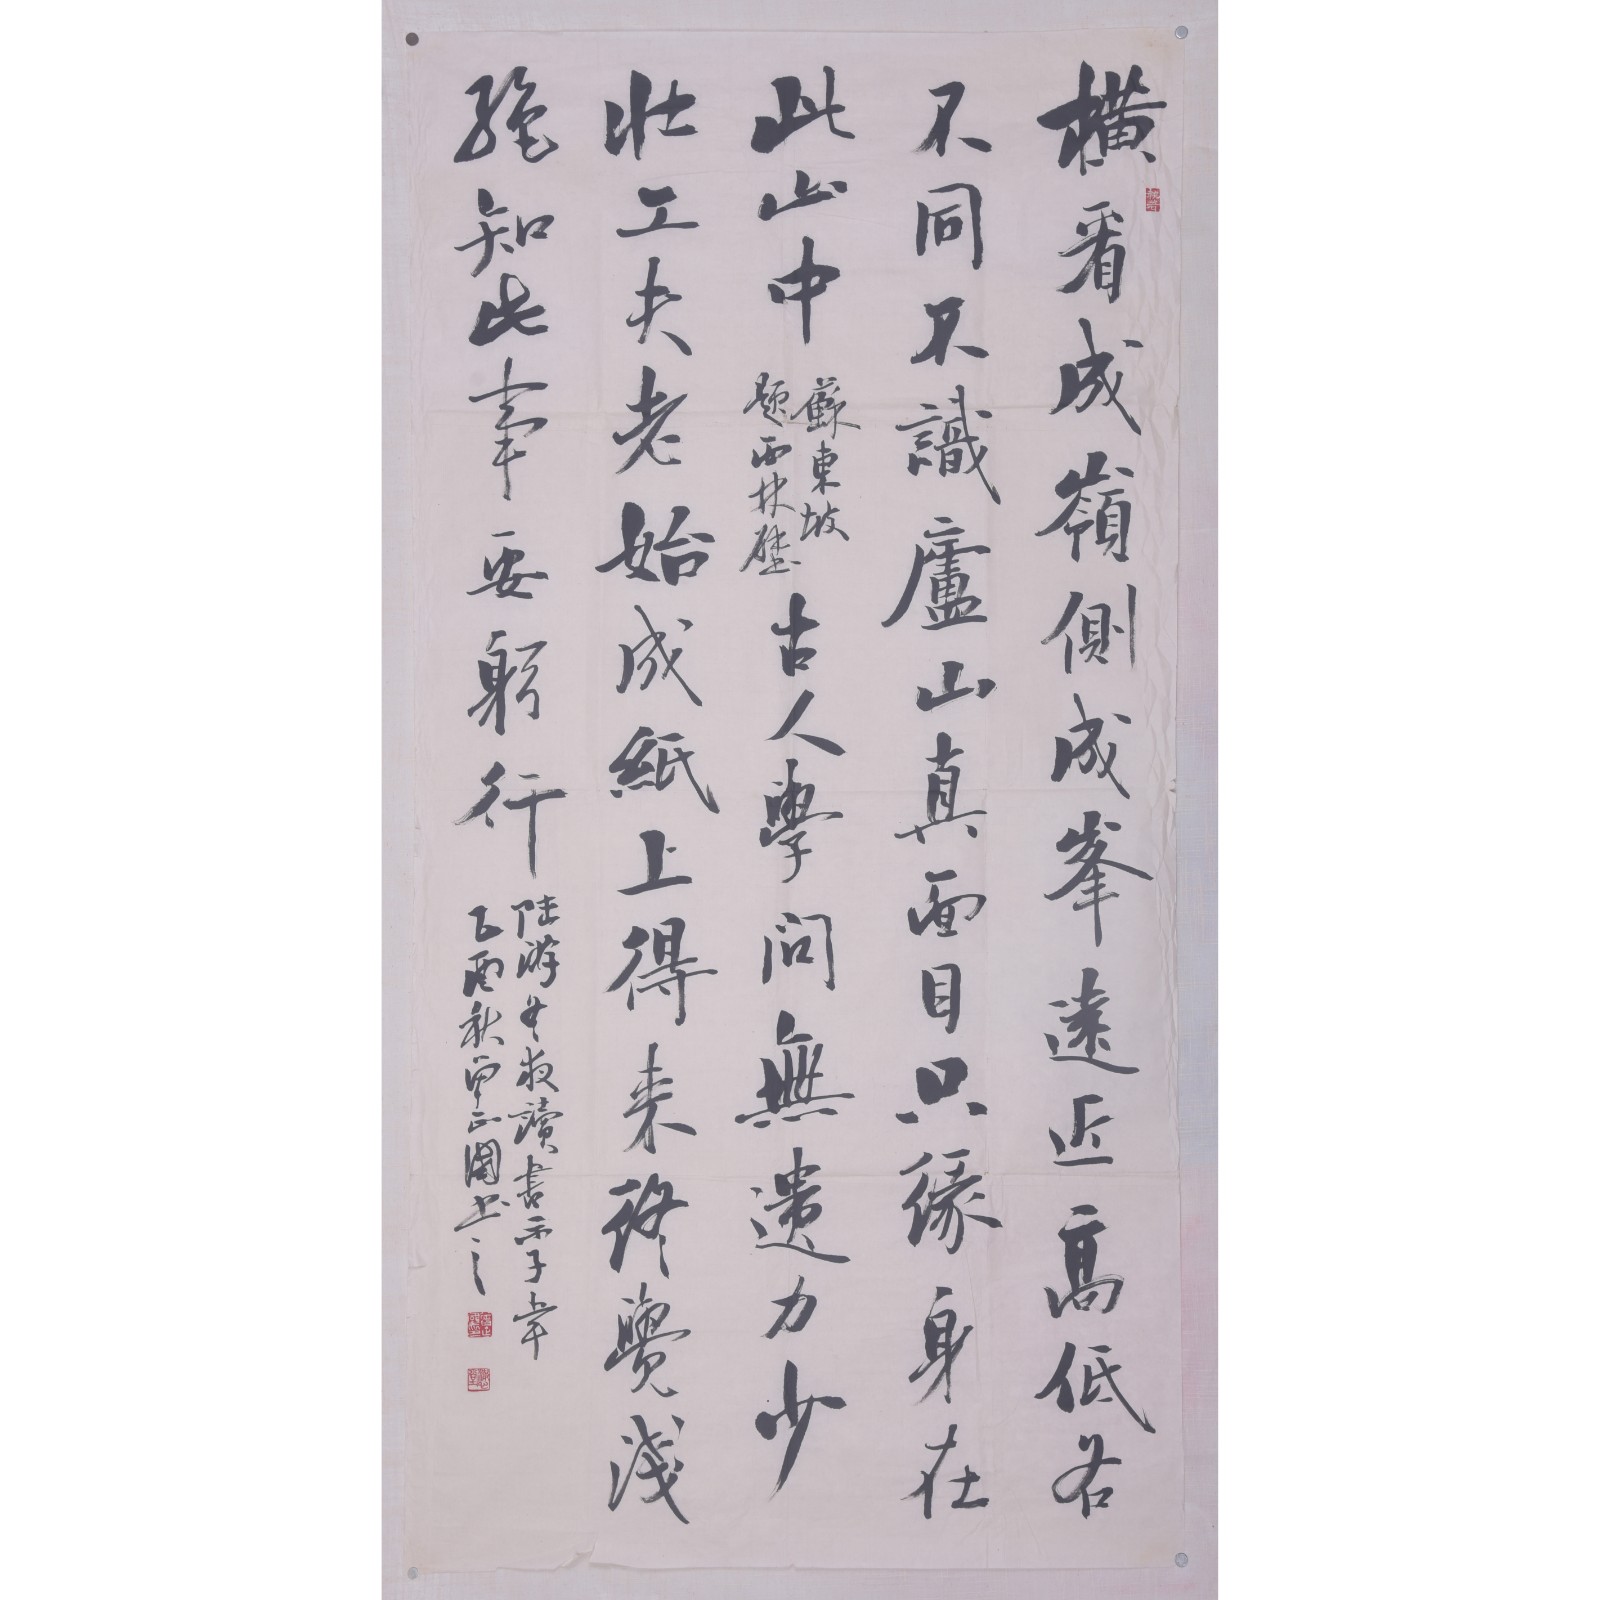 橫看成嶺側成峯遠近高低各
不同不識廬山真面目只緣身在
此山中
蘇東坡
题西林壁
古人學問無遺力少
壯工夫老始成紙上得来終覺淺
絕知此事要躬行
陆游冬夜讀書示子聿
乙酉秋曾正國书之